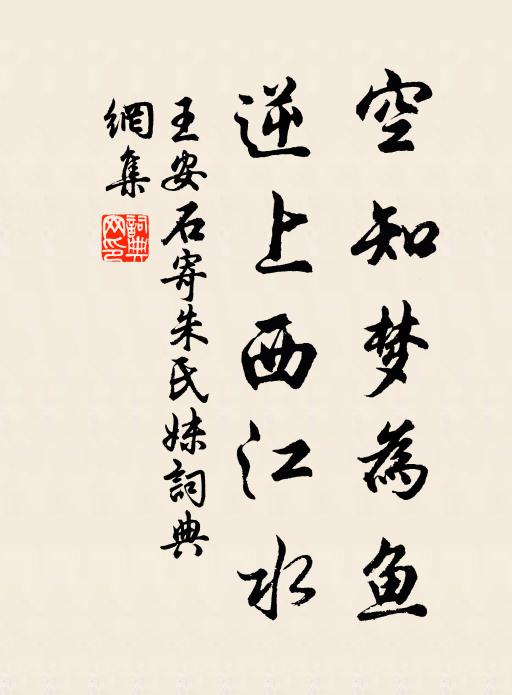 空知梦為鱼
逆上西江水
王安石寄朱氏妹詞典
網集
詞典
网印